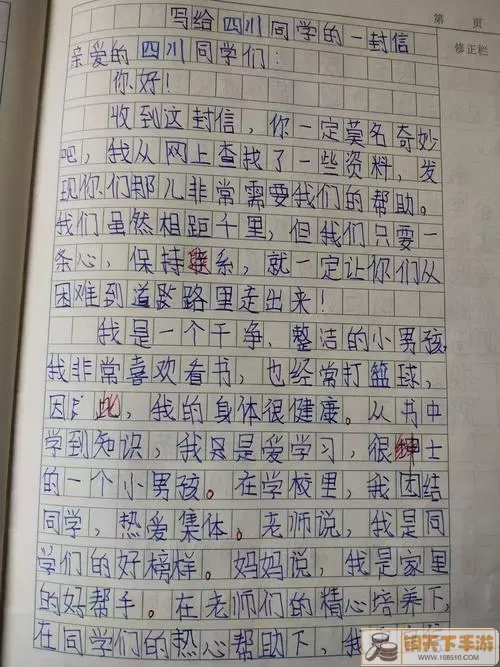 第 页
写给四川同学的一封信
修正栏
亲爱的四川同学们：
你好！
收到这封信，你一定莫名奇妙
吧，我从网上查找了一些资料，发
现你们那儿非常需要我们的帮助。
我们虽然相距千里，但我们只要一
条心，保持联系，就一定让你们从
困难到道路里走出来！
我是一个干净、整洁的小男孩
我非常喜欢看书，也经常打篮球，
因此，我的身体很健康。从书中
学到知识，我只是爱学习，很绅士
的一个小男孩。在学校里，我团结
同学，热爱集体。老师说，我是同
学们的好榜样。妈妈说，我是家里
的好帮手。在老师们的精心培养下，
在同学们的热心帮助下，我
铜天下手游
www.168510.com